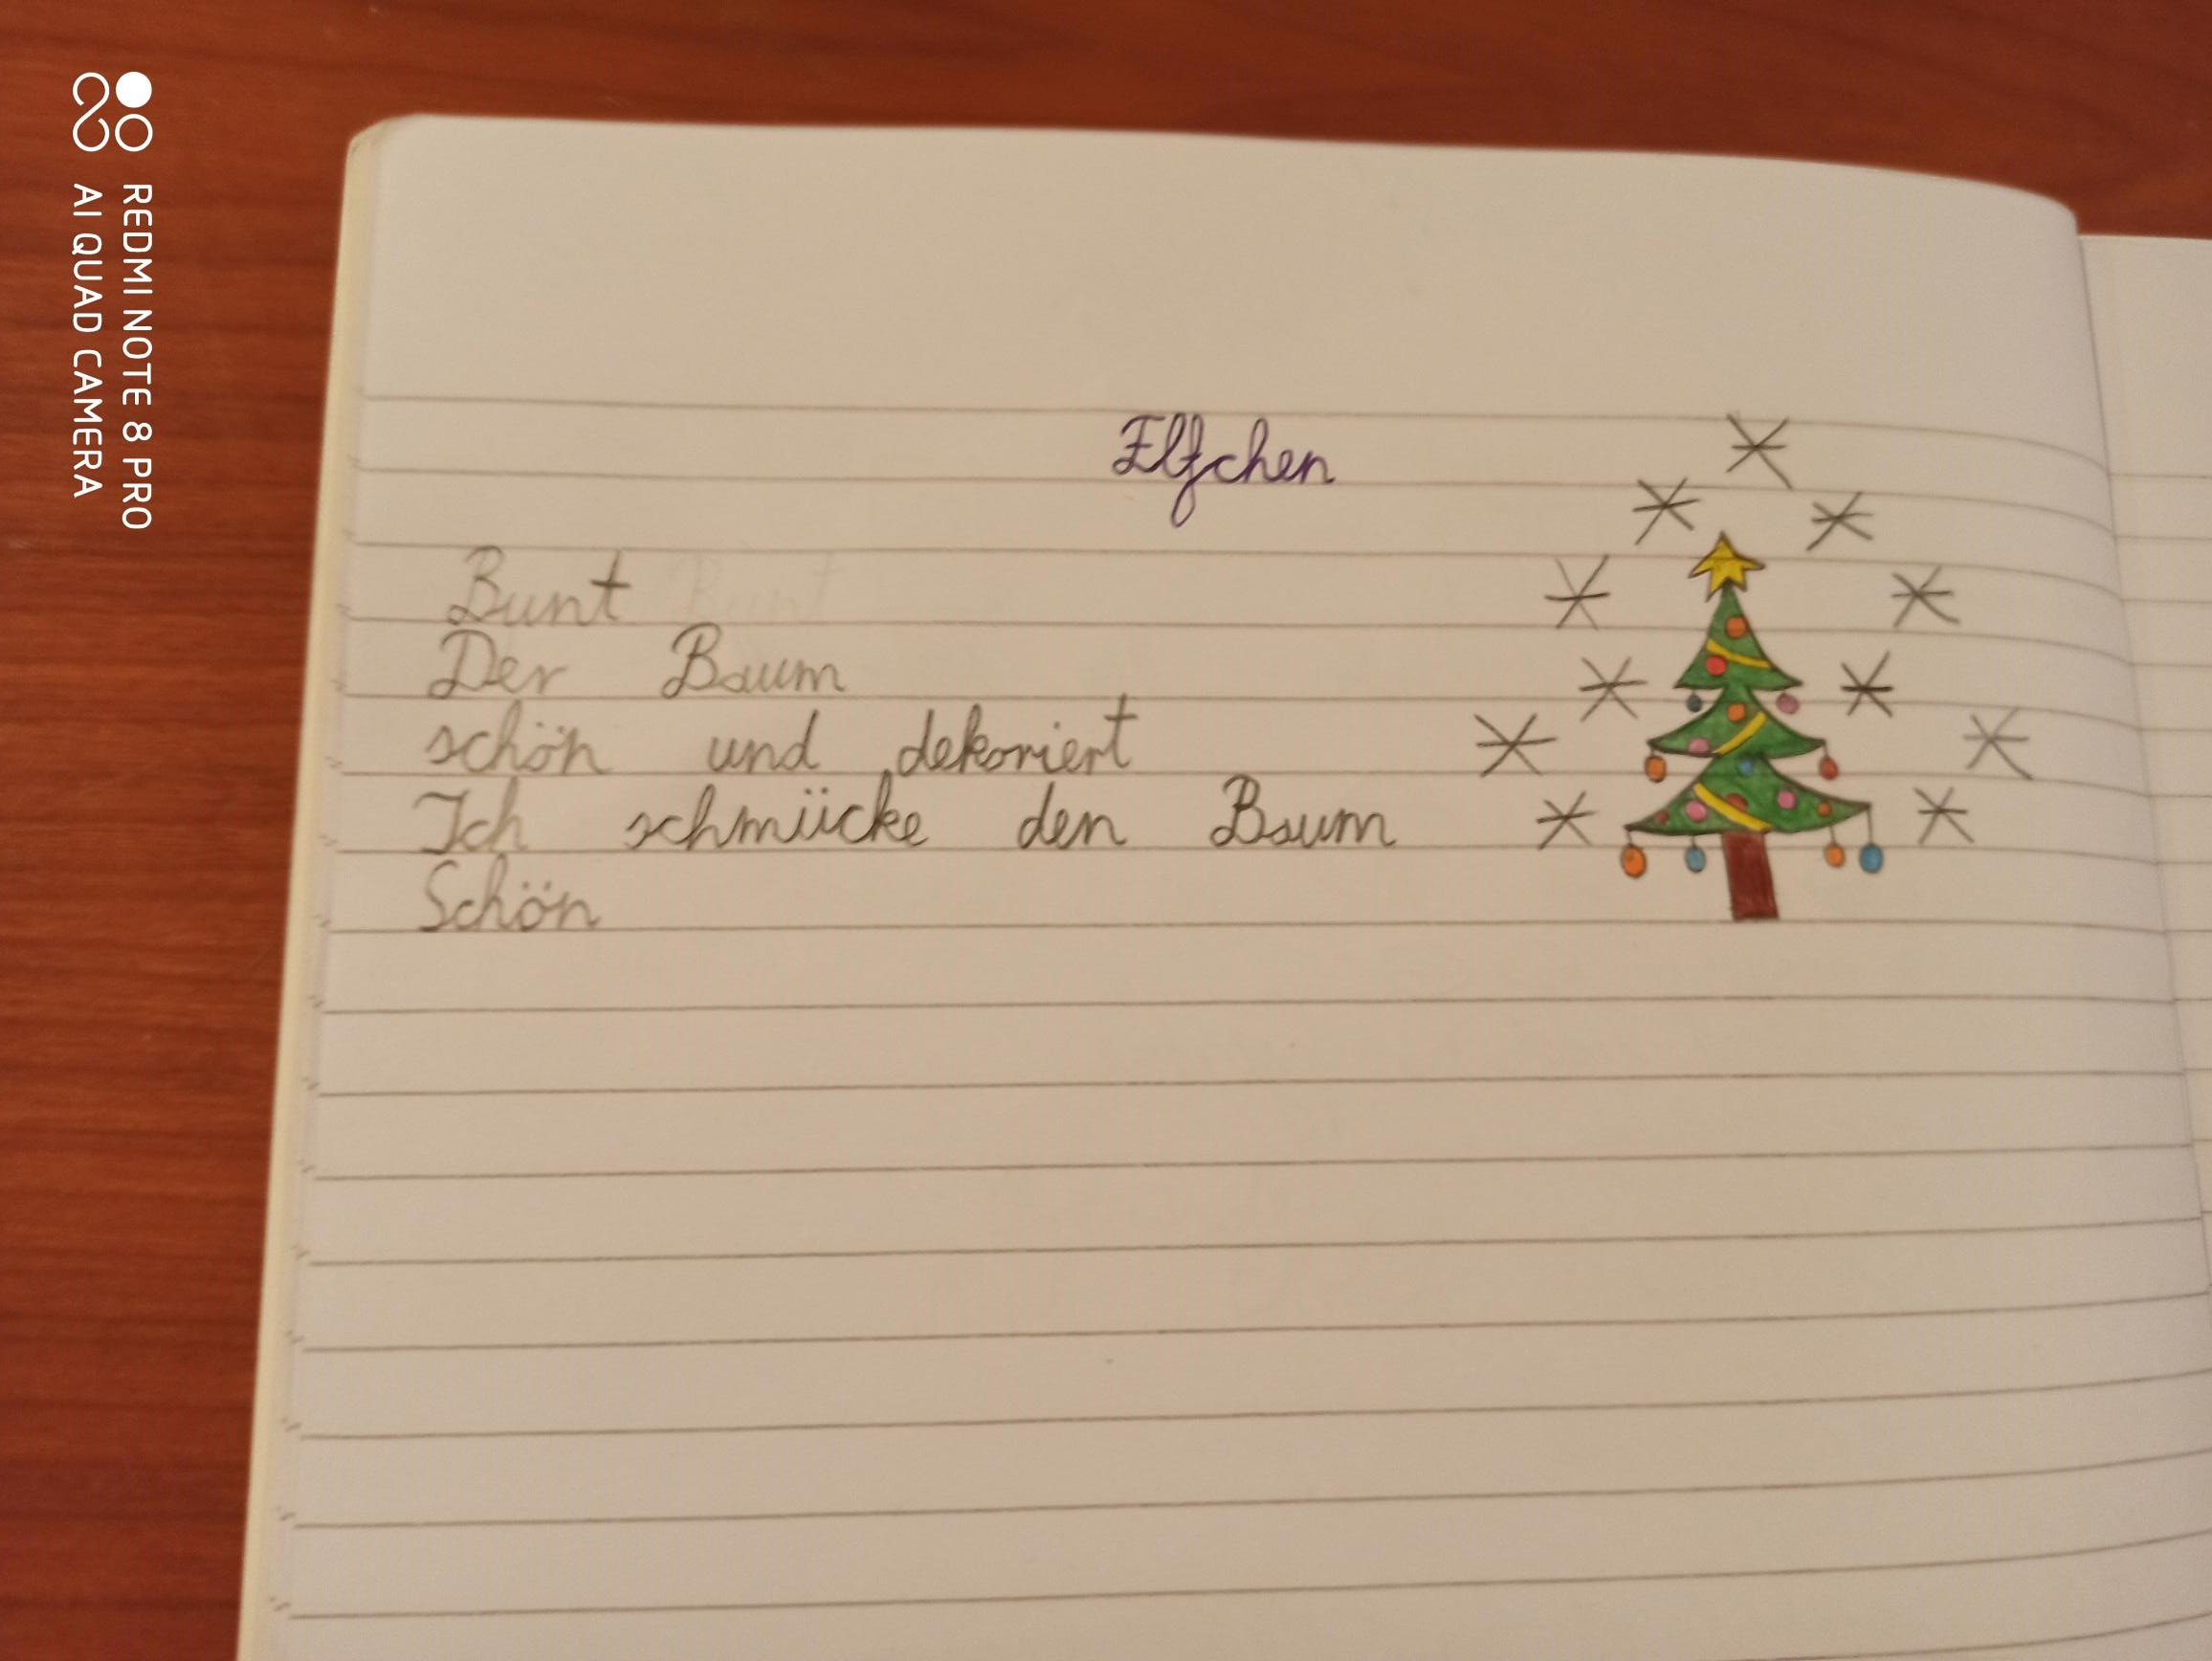 Elfchen
Bunt Bunt
Der Baum
schön und dekoriert
Ich schmücke den Baum
Schön
REDMI NOTE 8 PRO
AI QUAD CAMERA